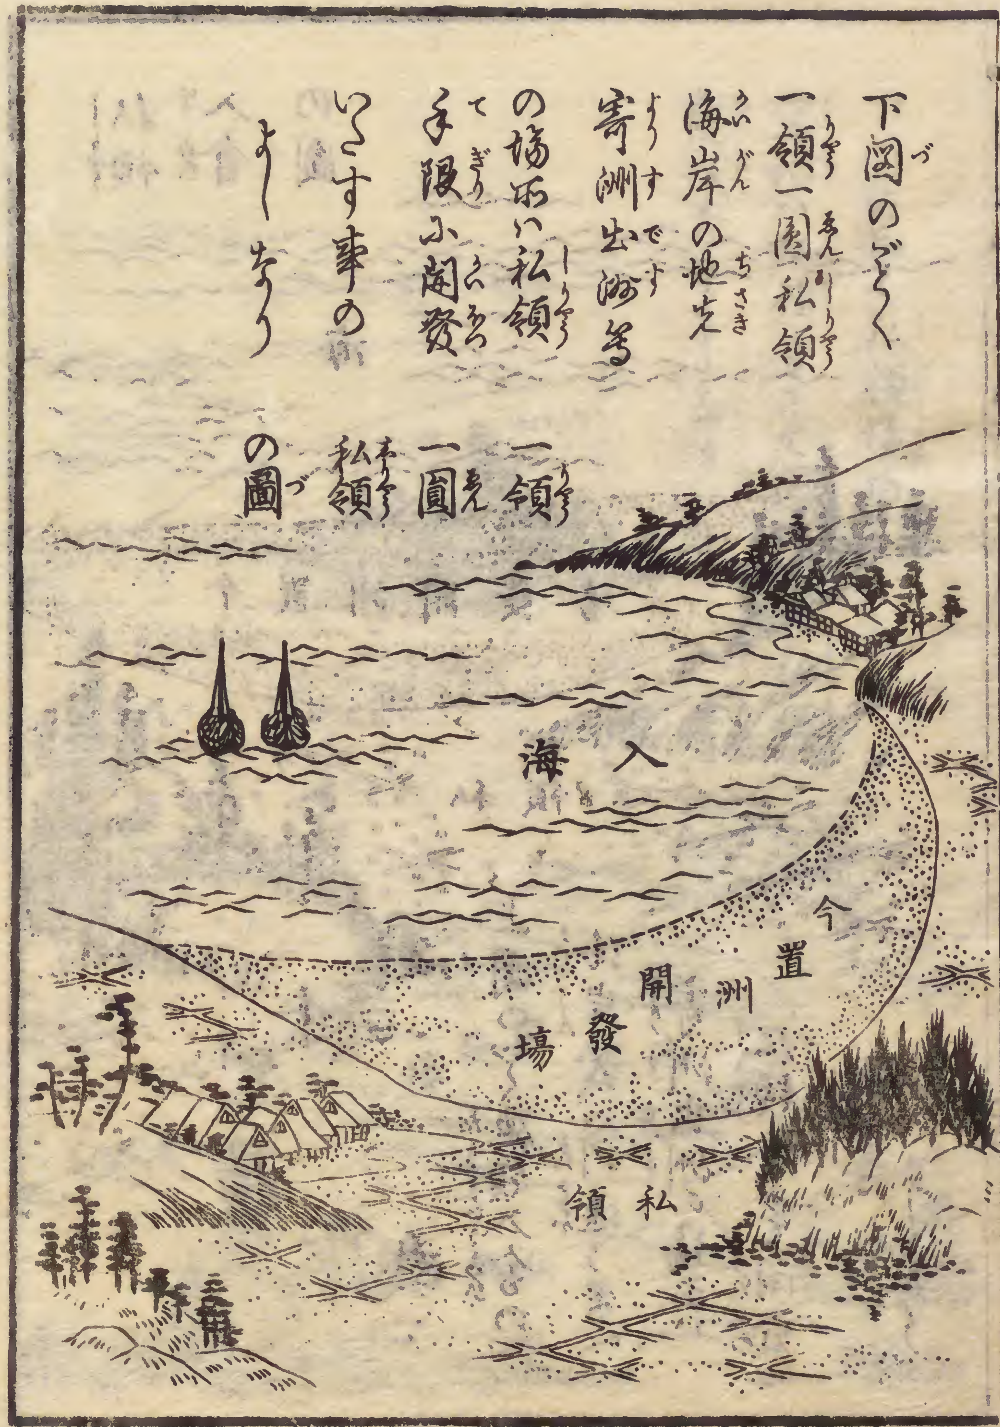 下図のごとく
一領一圓私領
海岸の地先
寄洲出洲等
の場所ハ私領
手限に開發
いたす事の
よしなり
一領
一圓
私領
の圖
入海
今置洲開發場
私領